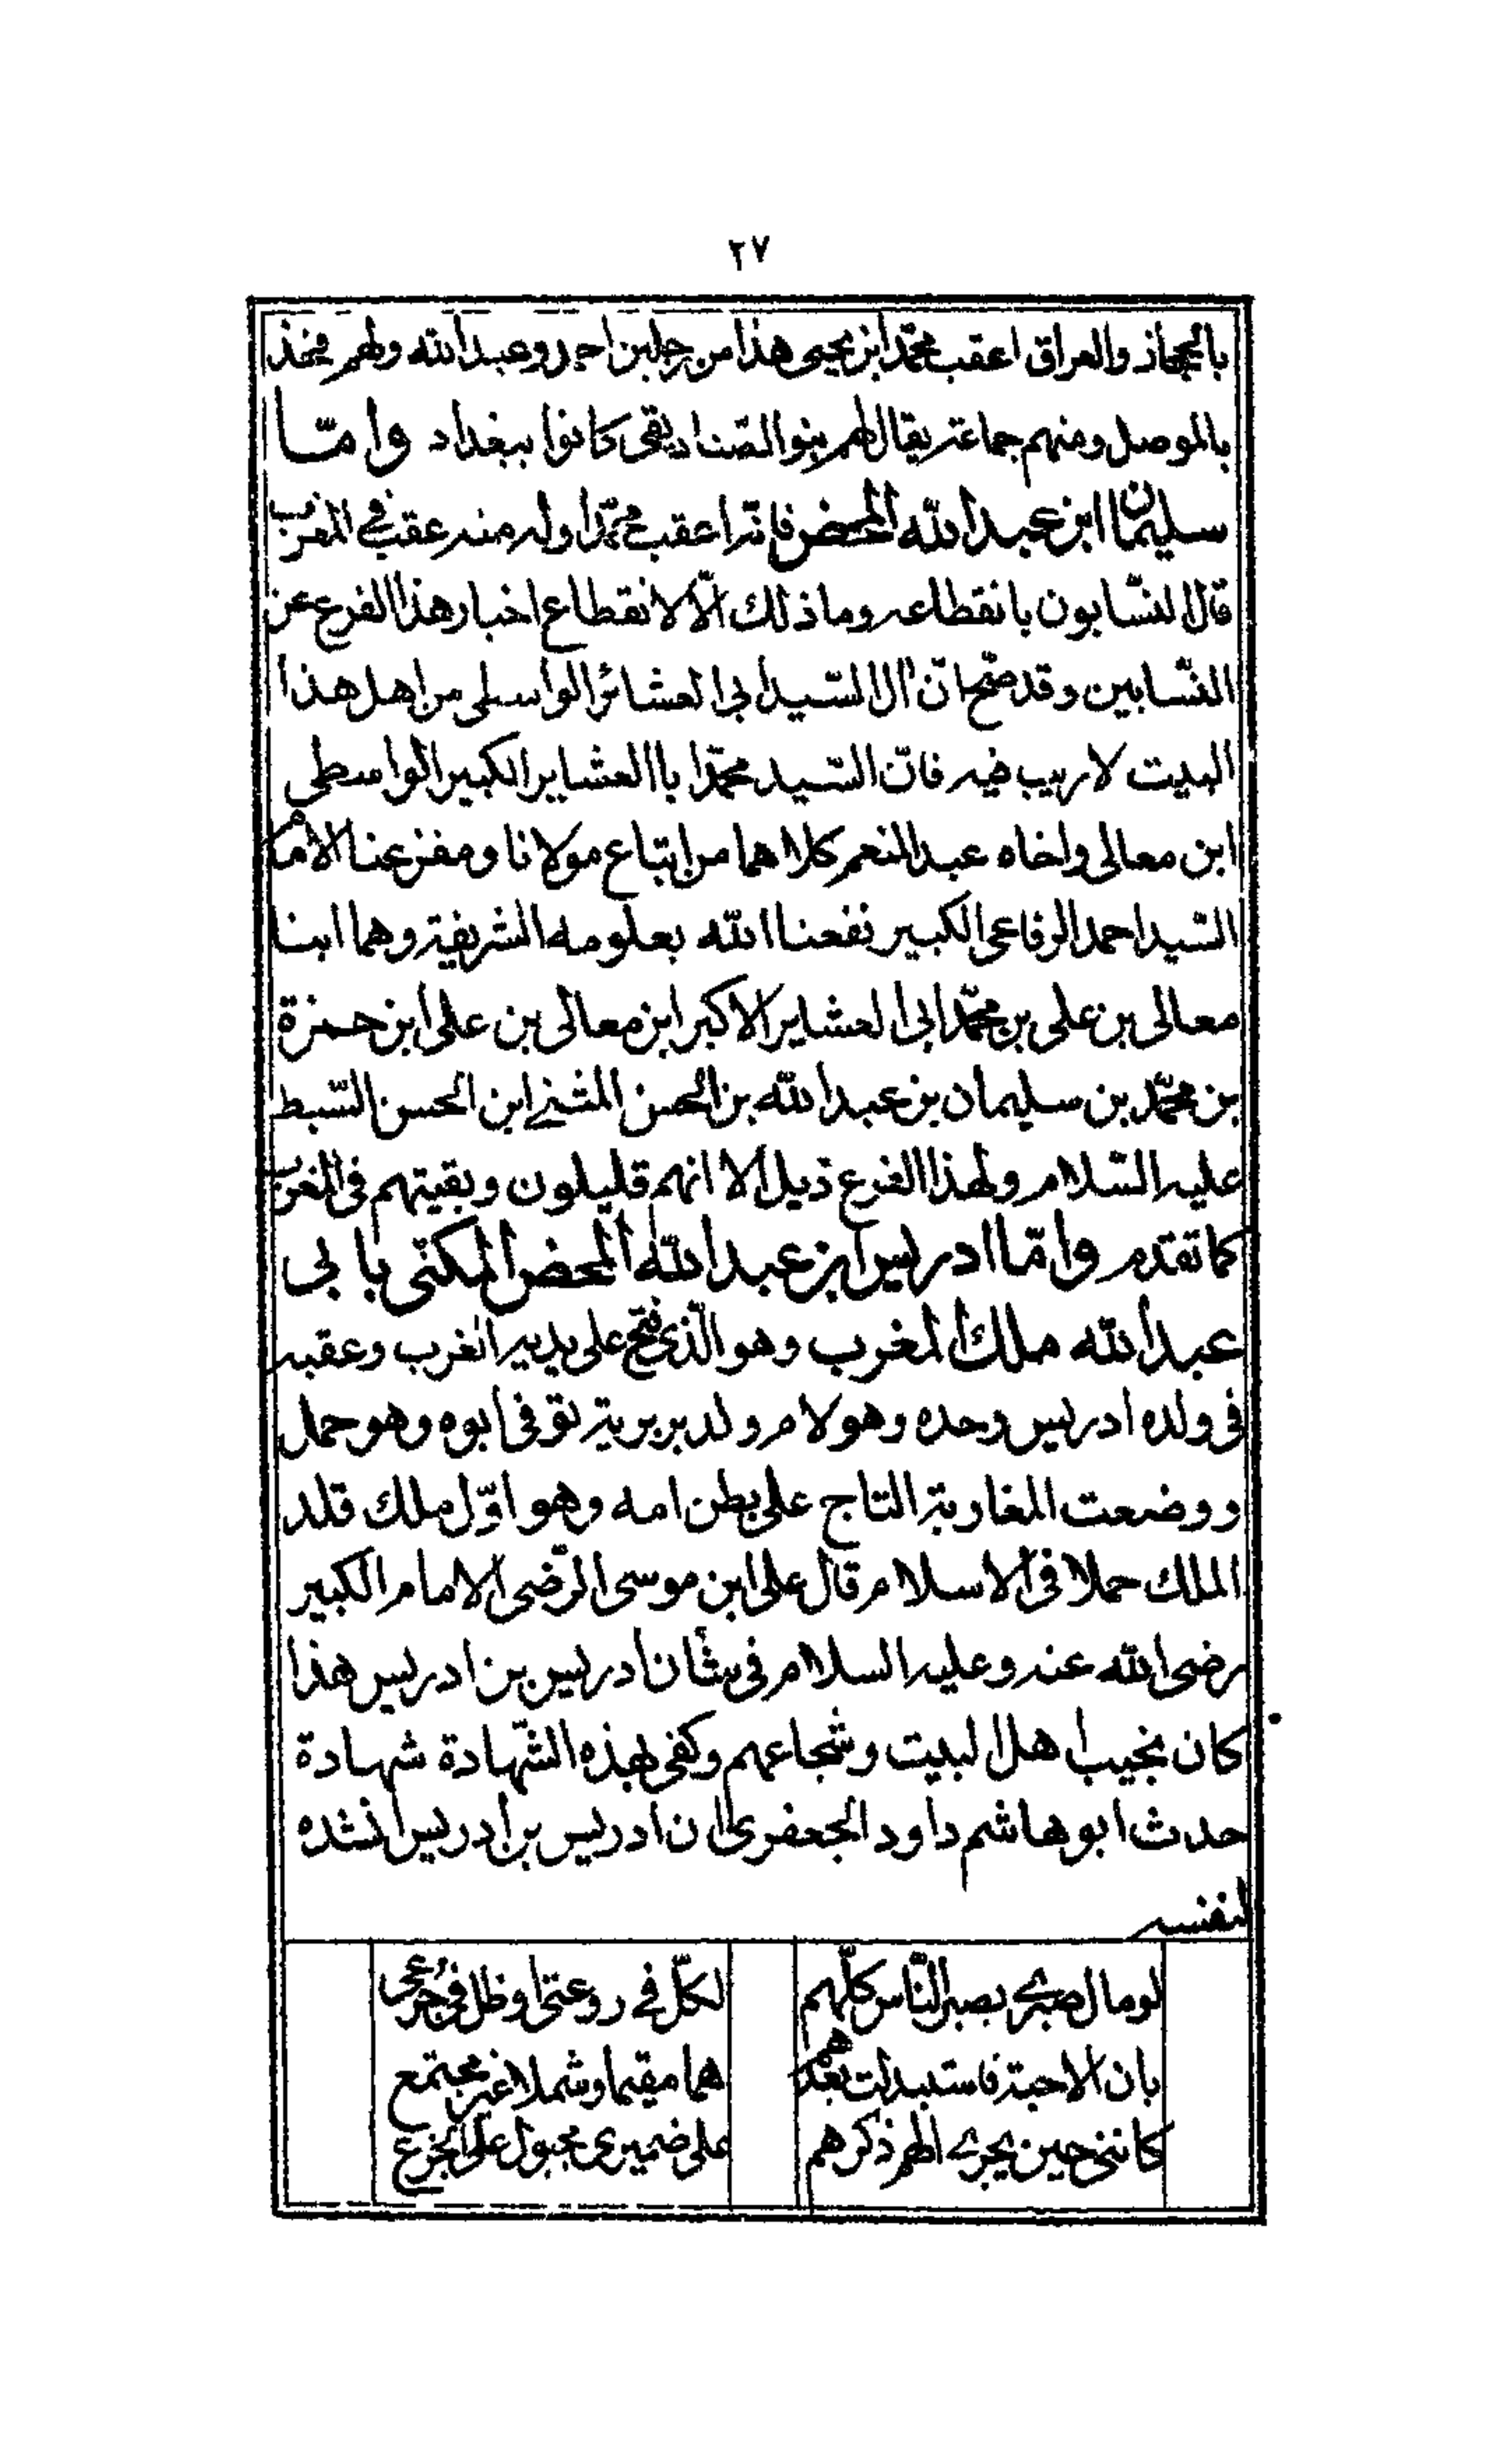 ٢٧
بالحجاز والعراق اعقب محمّد ابن يحيى هذا من رجلين احمد وعبدالله ولهم فخذ
بالموصل ومنهم جماعة يقال لهم بنو الصّناديقى كانوا ببغداد وامّا
سليمان ابن عبدالله المحض فانّه اعقب محمّدا وله منه عقب فى المغرب
قال النسّابون بانقطاعه وما ذلك الّا لانقطاع اخبار هذا الفرع عن
النسّابين وقد صحّ انّ ال السّيد ابى العشائر الواسطى من اهل هذا
البيت لاريب فيه فانّ السّيد محمّدا باالعشاير الكبير الواسطى
ابن معالى واخاه عبدالمنعم كلاهما من اتباع مولانا ومفزعنا الامام
السّيد احمد الرفاعى الكبير نفعنا الله بعلومه الشريفة وهما ابنا
معالى بن على بن محمّد ابى العشاير الاكبر ابن معالى بن على ابن حمزة
بن محمّد بن سليمان بن عبدالله بن الحسن المثنى ابن الحسن السّبط
عليه السّلام ولهذا الفرع ذيل الا انهم قليلون وبقيتهم فى المغرب
كما تقدم وامّا ادريس ابن عبدالله المحض المكنّى بابى
عبدالله ملك المغرب وهو الّذى فتح على يديه المغرب وعقبه
فى ولده ادريس وحده وهو لام ولد بربرية توفى ابوه وهو حمل
ووضعت المغاربة التاج على بطن امه وهو اوّل ملك قلد
الملك حملا فى الاسلام قال على ابن موسى الرّضى الامام الكبير
رضى الله عنه وعليه السلام فى شأن ادريس بن ادريس هذا
كان نجيب اهل البيت وشجاعهم وكفى بهذه الشّهادة شهادة
حدث ابو هاشم داود الجعفرى ان ادريس بن ادريس انشده
لنفسه
لو مال صبرى بصبر النّاس كلّهم لكلّ فى روعتى او ظل فى جزعى
بان الاحبة فاستبدلت بعدهم هما مقيما وشملا غير مجتمع
كاننى حين يجرى الهم ذكرهم على ضميرى مجبول على الجزع